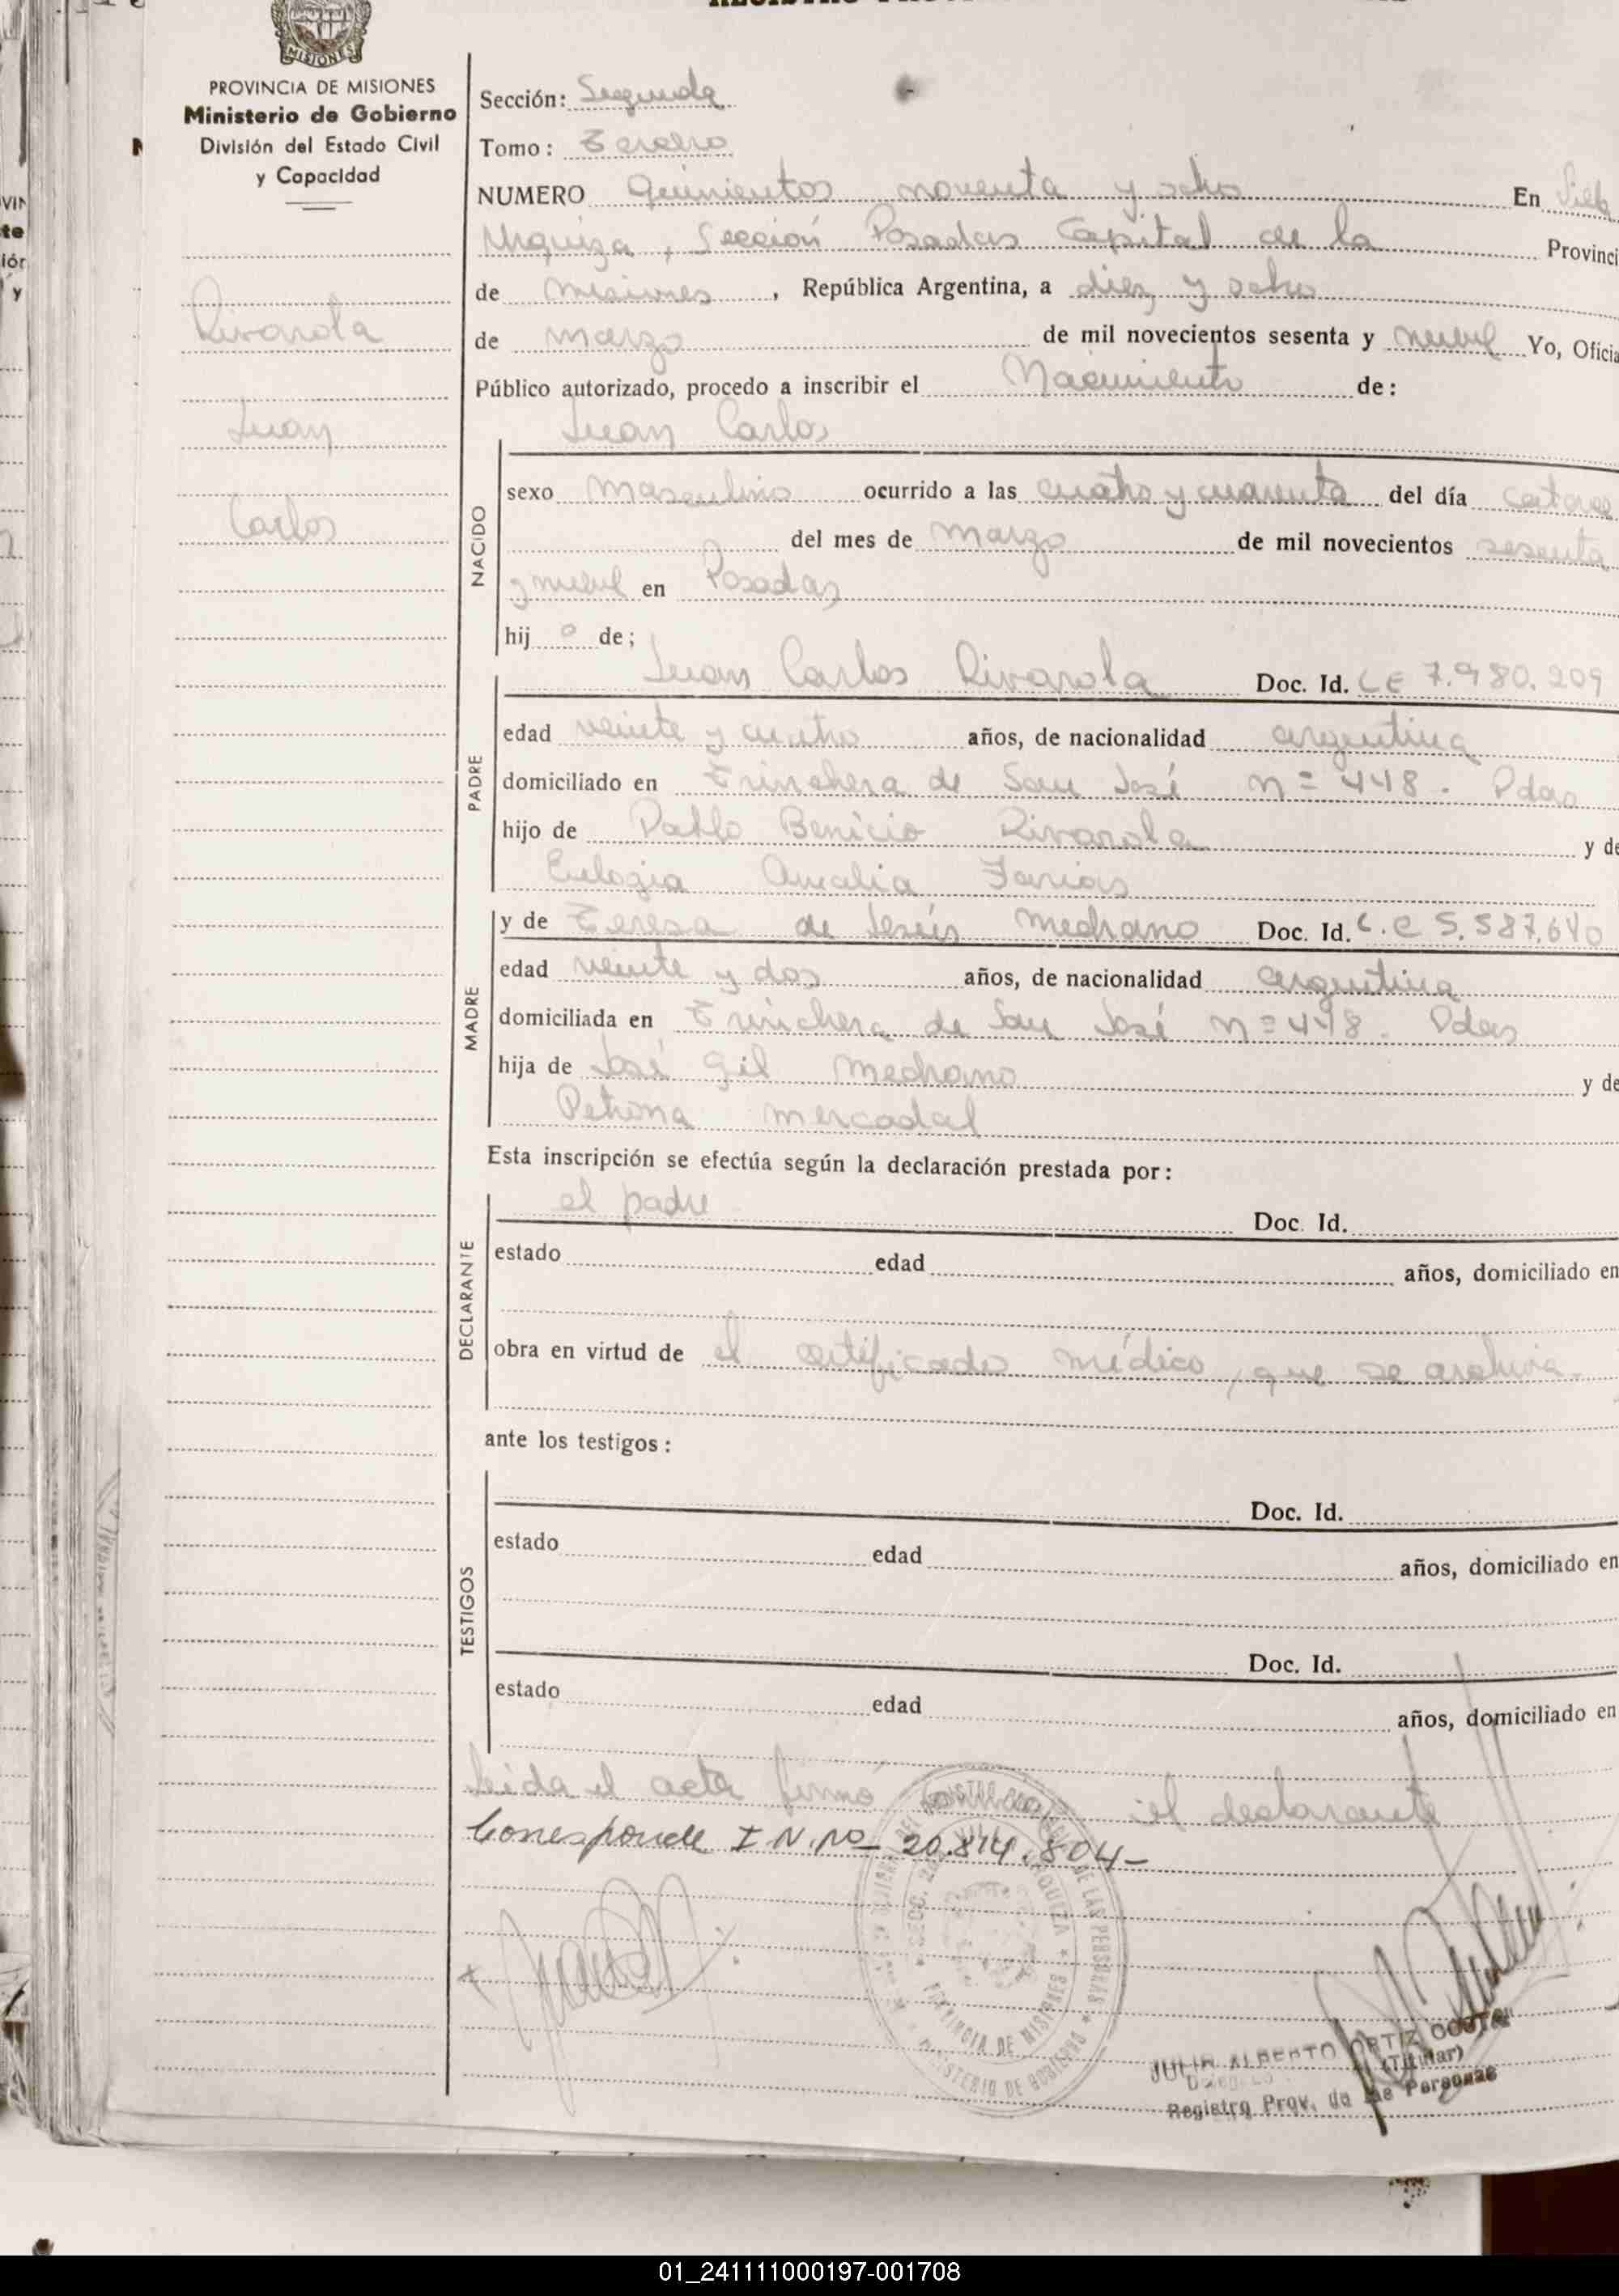 MISIONES
PROVINCIA DE MISIONES
Ministerio de Gobierno
División del Estado Civil
y Capacidad
Rivarola
Juan
Carlos
Sección: Segunda
Tomo: Tercero
NUMERO Quinientos noventa y ocho En Villa
Urquiza, Sección Posadas Capital de la Provinci
de Misiones, República Argentina, a diez y ocho
de marzo de mil novecientos sesenta y nueve Yo, Oficia
Público autorizado, procedo a inscribir el Nacimiento de:
Juan Carlos
NACIDO
sexo masculino ocurrido a las cuatro y cuarenta del día catorce
del mes de marzo de mil novecientos sesenta
y nueve en Posadas
hij o de;
PADRE
Juan Carlos Rivarola Doc. Id. LE 7.980.209
edad veinte y cuatro años, de nacionalidad argentina
domiciliado en Trinchera de San José n= 448. Pdas
hijo de Pablo Benicio Rivarola y de
Eulogia Amalia Farias
MADRE
y de Teresa de Jesús Medrano Doc. Id. L.C 5.587.640
edad veinte y dos años, de nacionalidad argentina
domiciliada en Trinchera de San José n= 448. Pdas
hija de José Gil Medrano y de
Petrona Mercadal
Esta inscripción se efectúa según la declaración prestada por:
DECLARANTE
el padre Doc. Id.
estado edad años, domiciliado en
obra en virtud de el certificado médico, que se archiva.
ante los testigos:
TESTIGOS
Doc. Id.
estado edad años, domiciliado en
Doc. Id.
estado edad años, domiciliado en
Leida el acta firmó el declarante
Corresponde I.N.No 20.814.804-
DE LAS PERSONAS
PROVINCIA DE MISIONES
MINISTERIO DE GOBIERNO
ALBERTO ORTIZ COSTA
(Titular)
Registro Prov. de las Personas
01_241111000197-001708